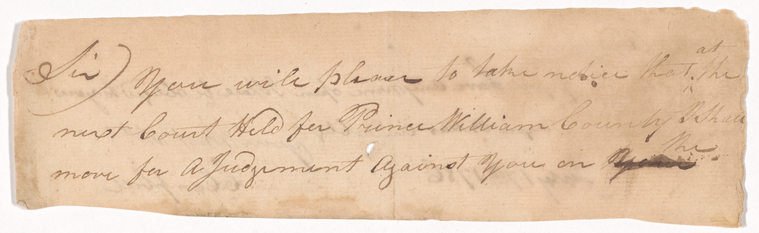 Sir) You will please to take notice that at the
next Court Held for Prince William County I Shall
move for A Judgement Against You on the